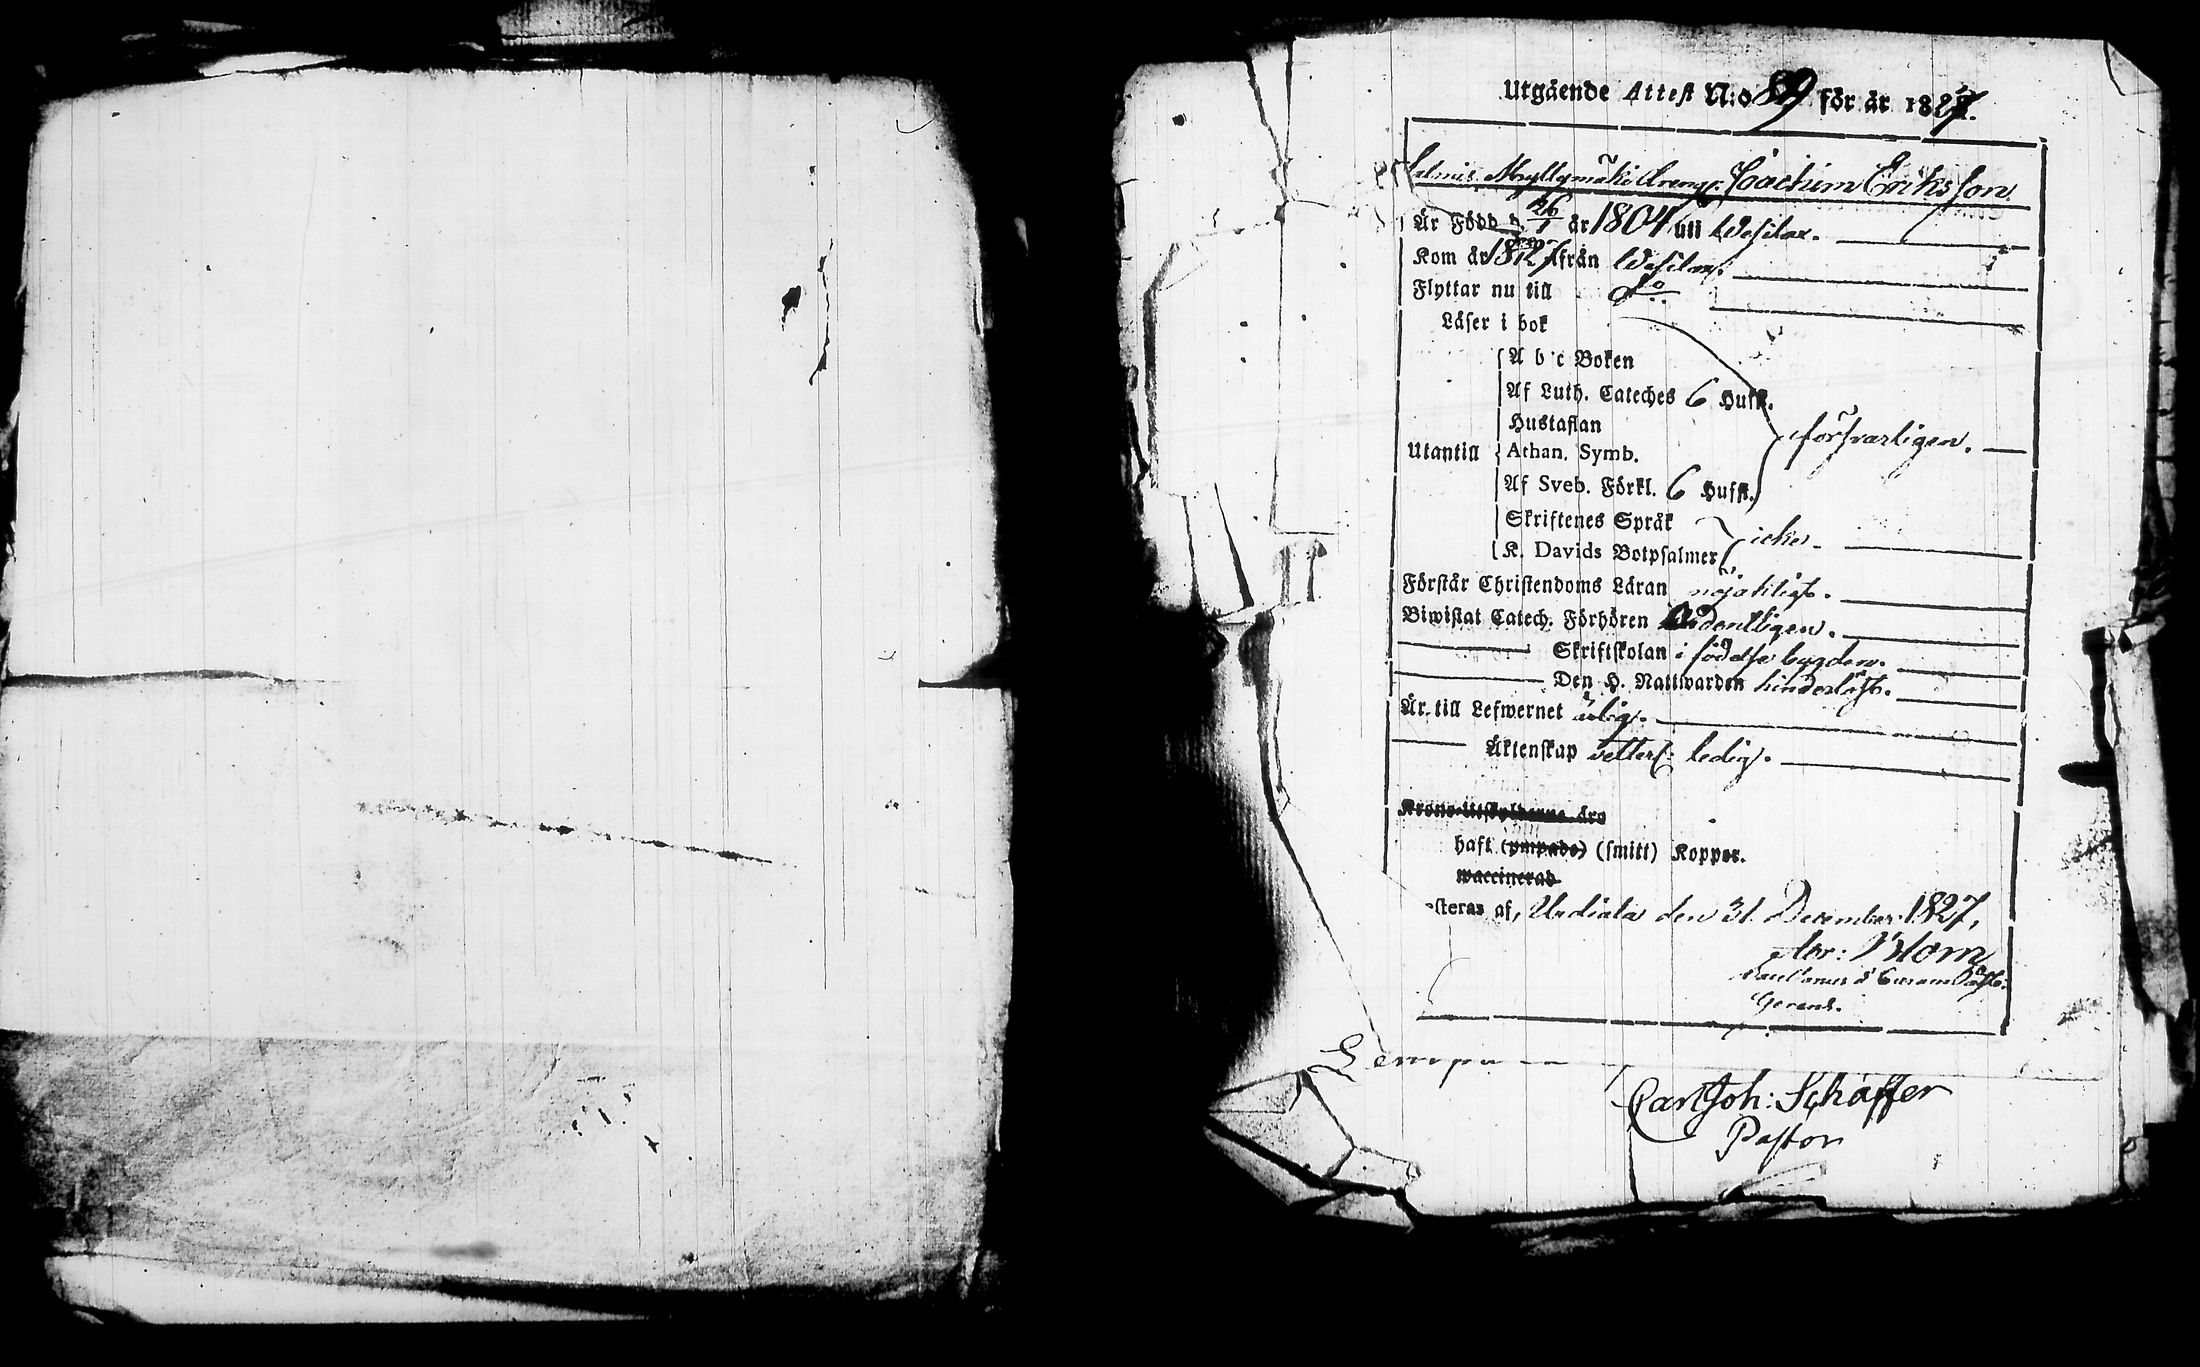 Utgående Attest N:o 89 för år 1827.
Myllymäki Dreng: Joachim Eriksson
Är Född d. 26/1 år 1804 uti Wesilax.
Kom år 1827 ifrån Wesilax.
Flyttar nu till d:o
Läser i bok
A b c Boken
Af Luth. Cateches 6 Hufst.
Hustaflan
Utantill Athan. Symb. försvarligen.
Af Sveb. Förkl. 6 Hufst.
Skriftenes Språk
K. Davids Botpsalmer icke.
Förstår Christendoms Läran nöjaktigt.
Biwistat Catech. Förhören Ordentligen.
Skriftskolan i födelse bygden.
Den H. Nattwarden hinderlöst.
Är till Lefwernet ärlig.
Äktenskap vetterl: ledig.
Krono-Utskylderne äro
haft (ympade) (smitt) Koppor.
waccinerad
esteras af, Urdiala den 31. December 1827,
Blom
Gerens.
Lempo
Carl Joh: Schäffer
Pastor